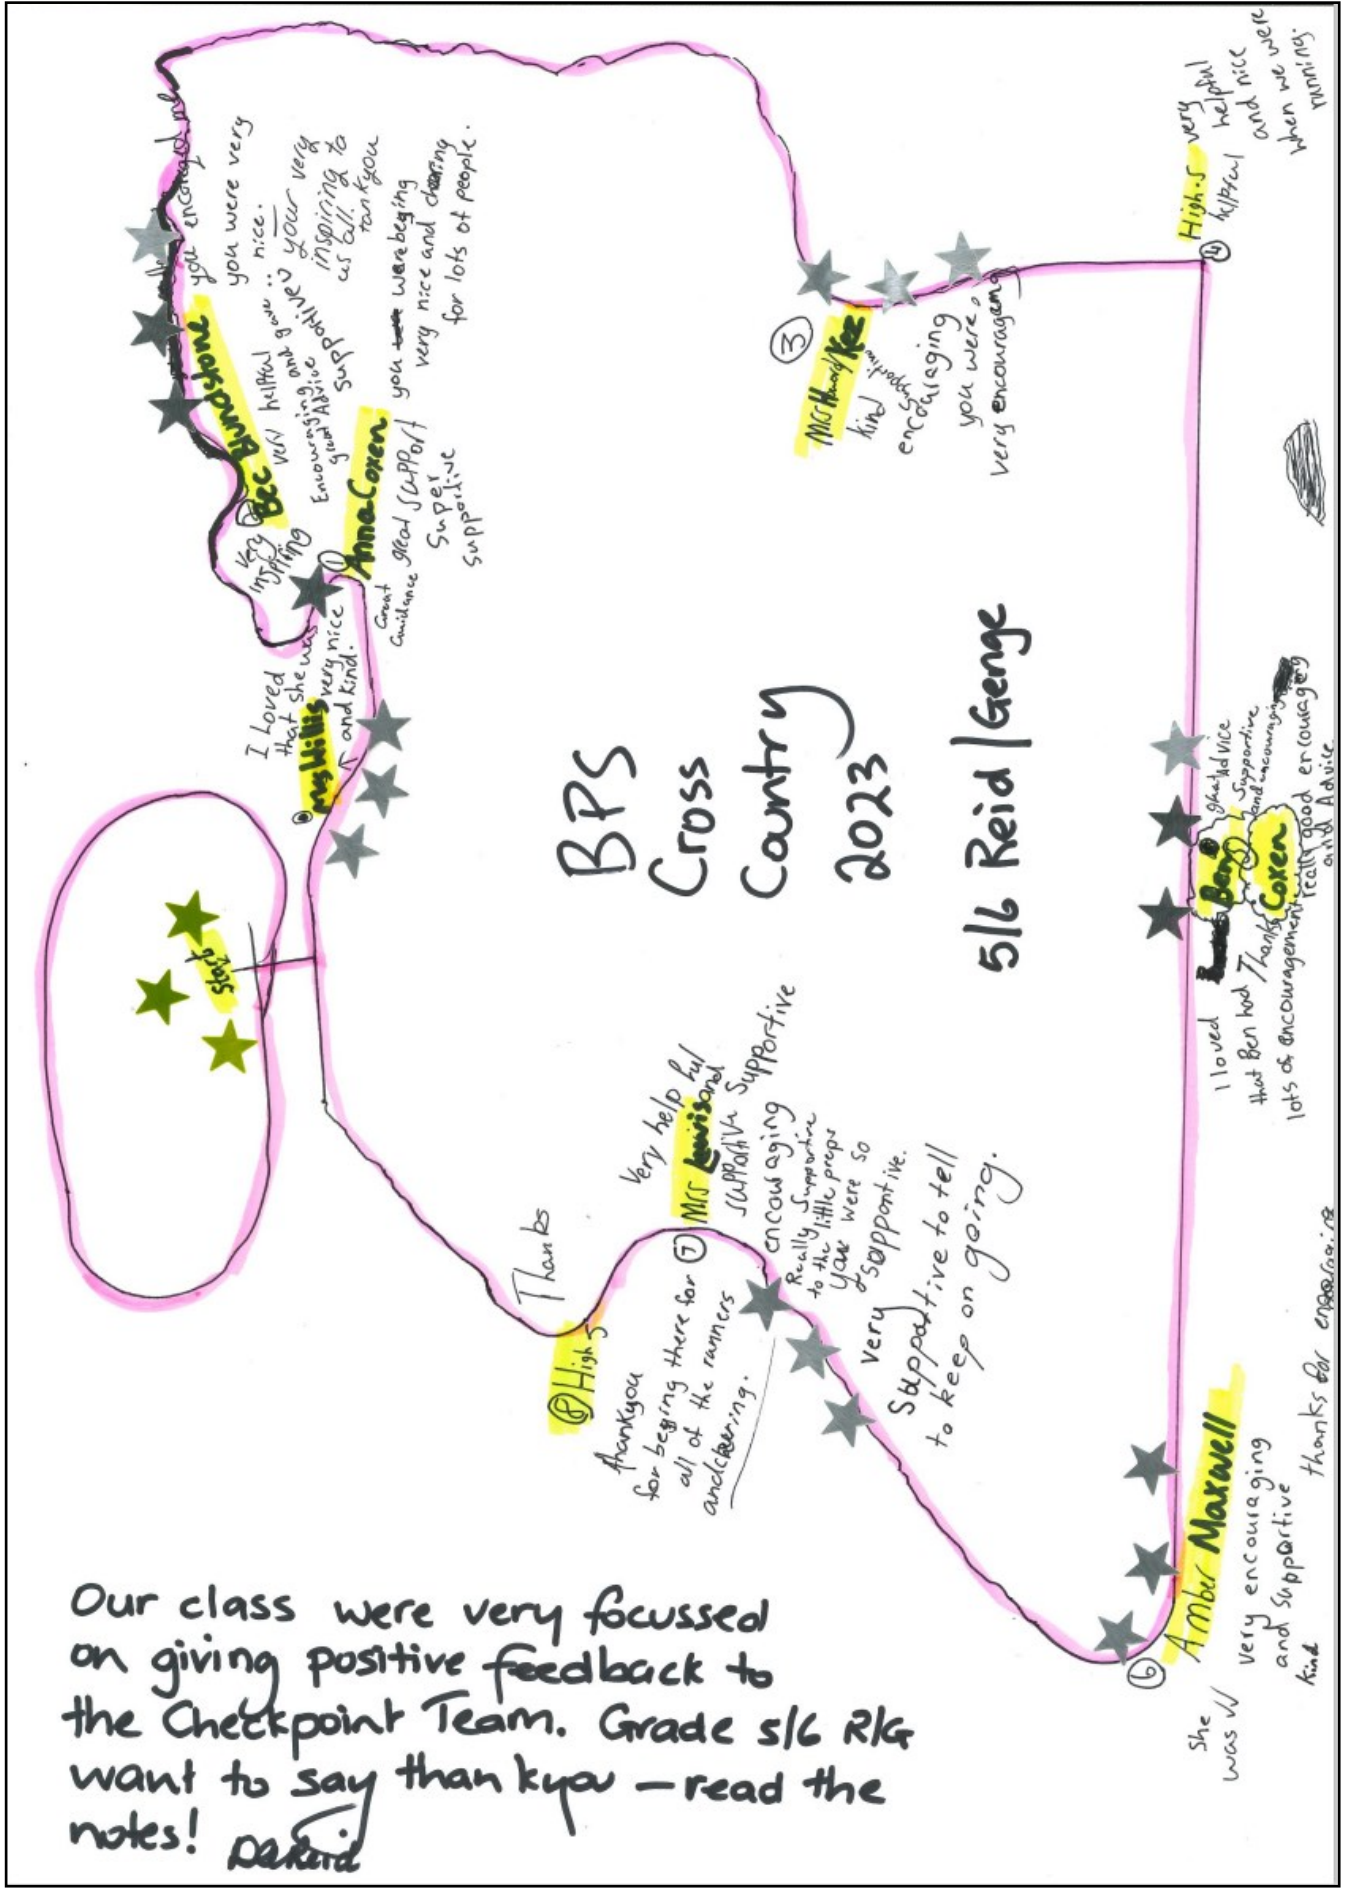 BPS
Cross
Country
2023
5/6 Reid/Genge
start
I Loved
that she was
Mrs Willis very nice
and kind.
①
Anna Coxen
Great
Guidance
great support
Super
supportive
you were beging
very nice and
for lots of people.
very
inspiring
Bec Blundstone
you
you were very
nice.
very helpful
Encouraging and gave
great Advice
supportive
your very
inspiring to
us all.
tankyou
③
Mrs Kez
kind
supportive
encouraging
you were
very encouraging
④
High 5
very
helpful
helpful
and nice
when we were
running.
Ben
Coxen
great Advice
Supportive
and encouraging
really good encouraging
and Advice
Thanks
I loved
that Ben had
lots of encouragement
⑥
Amber Maxwell
She
was
very encouraging
and supportive
kind
thanks for
⑦
Mrs Lewis
Very help ful
and
supportive
Supportive
encouraging
Really Supportive
to the little preps
You were so
supportive.
very
Supportive to tell
to keep on going.
Thankyou
for beging there for
all of the runners
and cheering.
⑧ High 5
Thanks
Our class were very focussed
on giving positive feedback to
the Checkpoint Team. Grade 5/6 R/G
want to say thankyou – read the
notes!